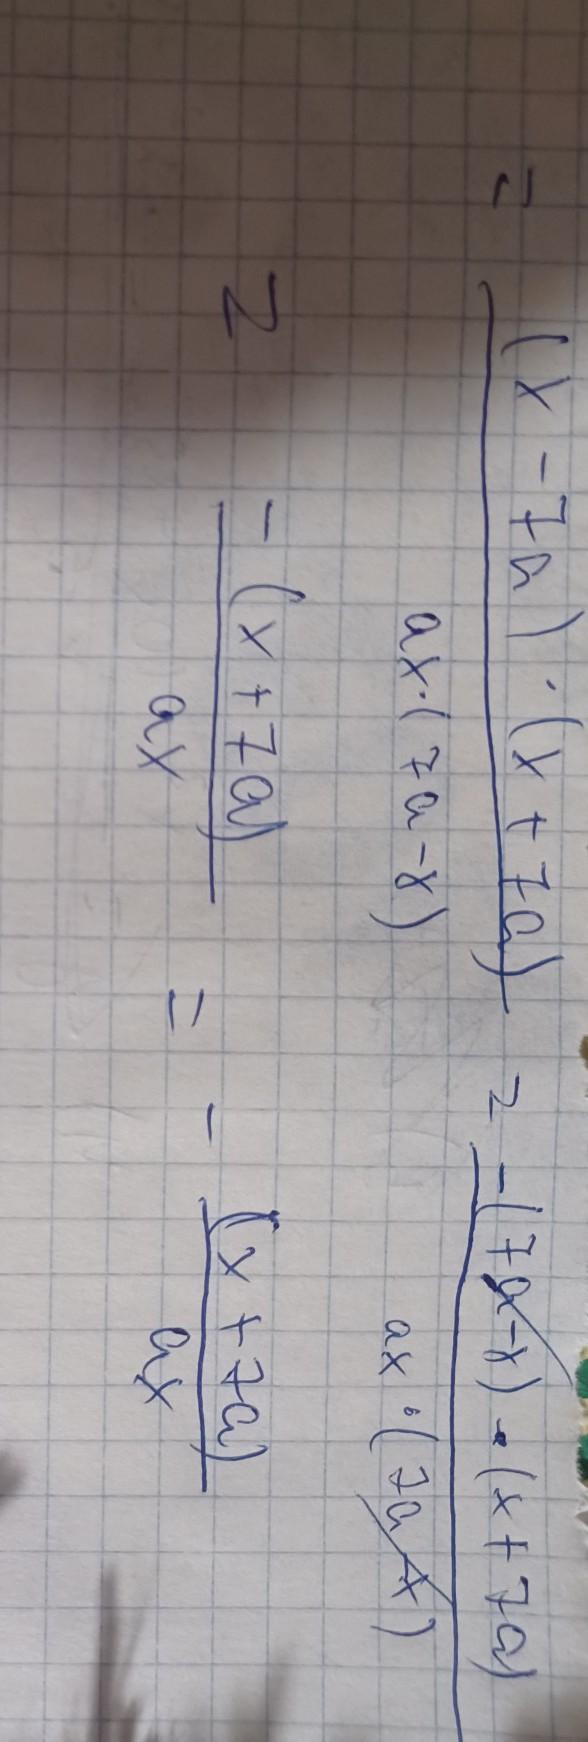 = (x - 7a) · (x + 7a) / ax · (7a - x) = -(7a - x) · (x + 7a) / ax · (7a - x)
= -(x + 7a) / ax = - (x + 7a) / ax